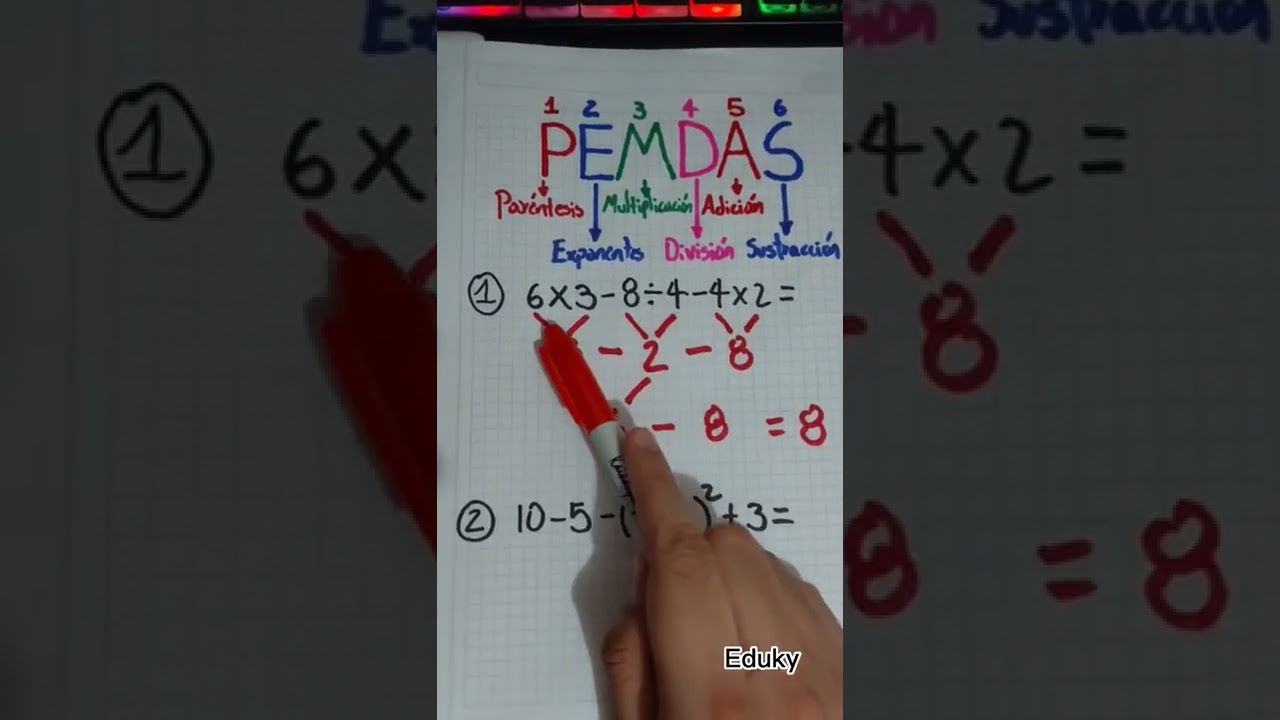 1 2 3 4 5 6
PEMDAS
Paréntesis Multiplicación Adición
Exponentes División Sustracción
1 6×3-8÷4-4×2=
- 2 - 8
- 8 = 8
2 10-5-( )²+3=
Eduky